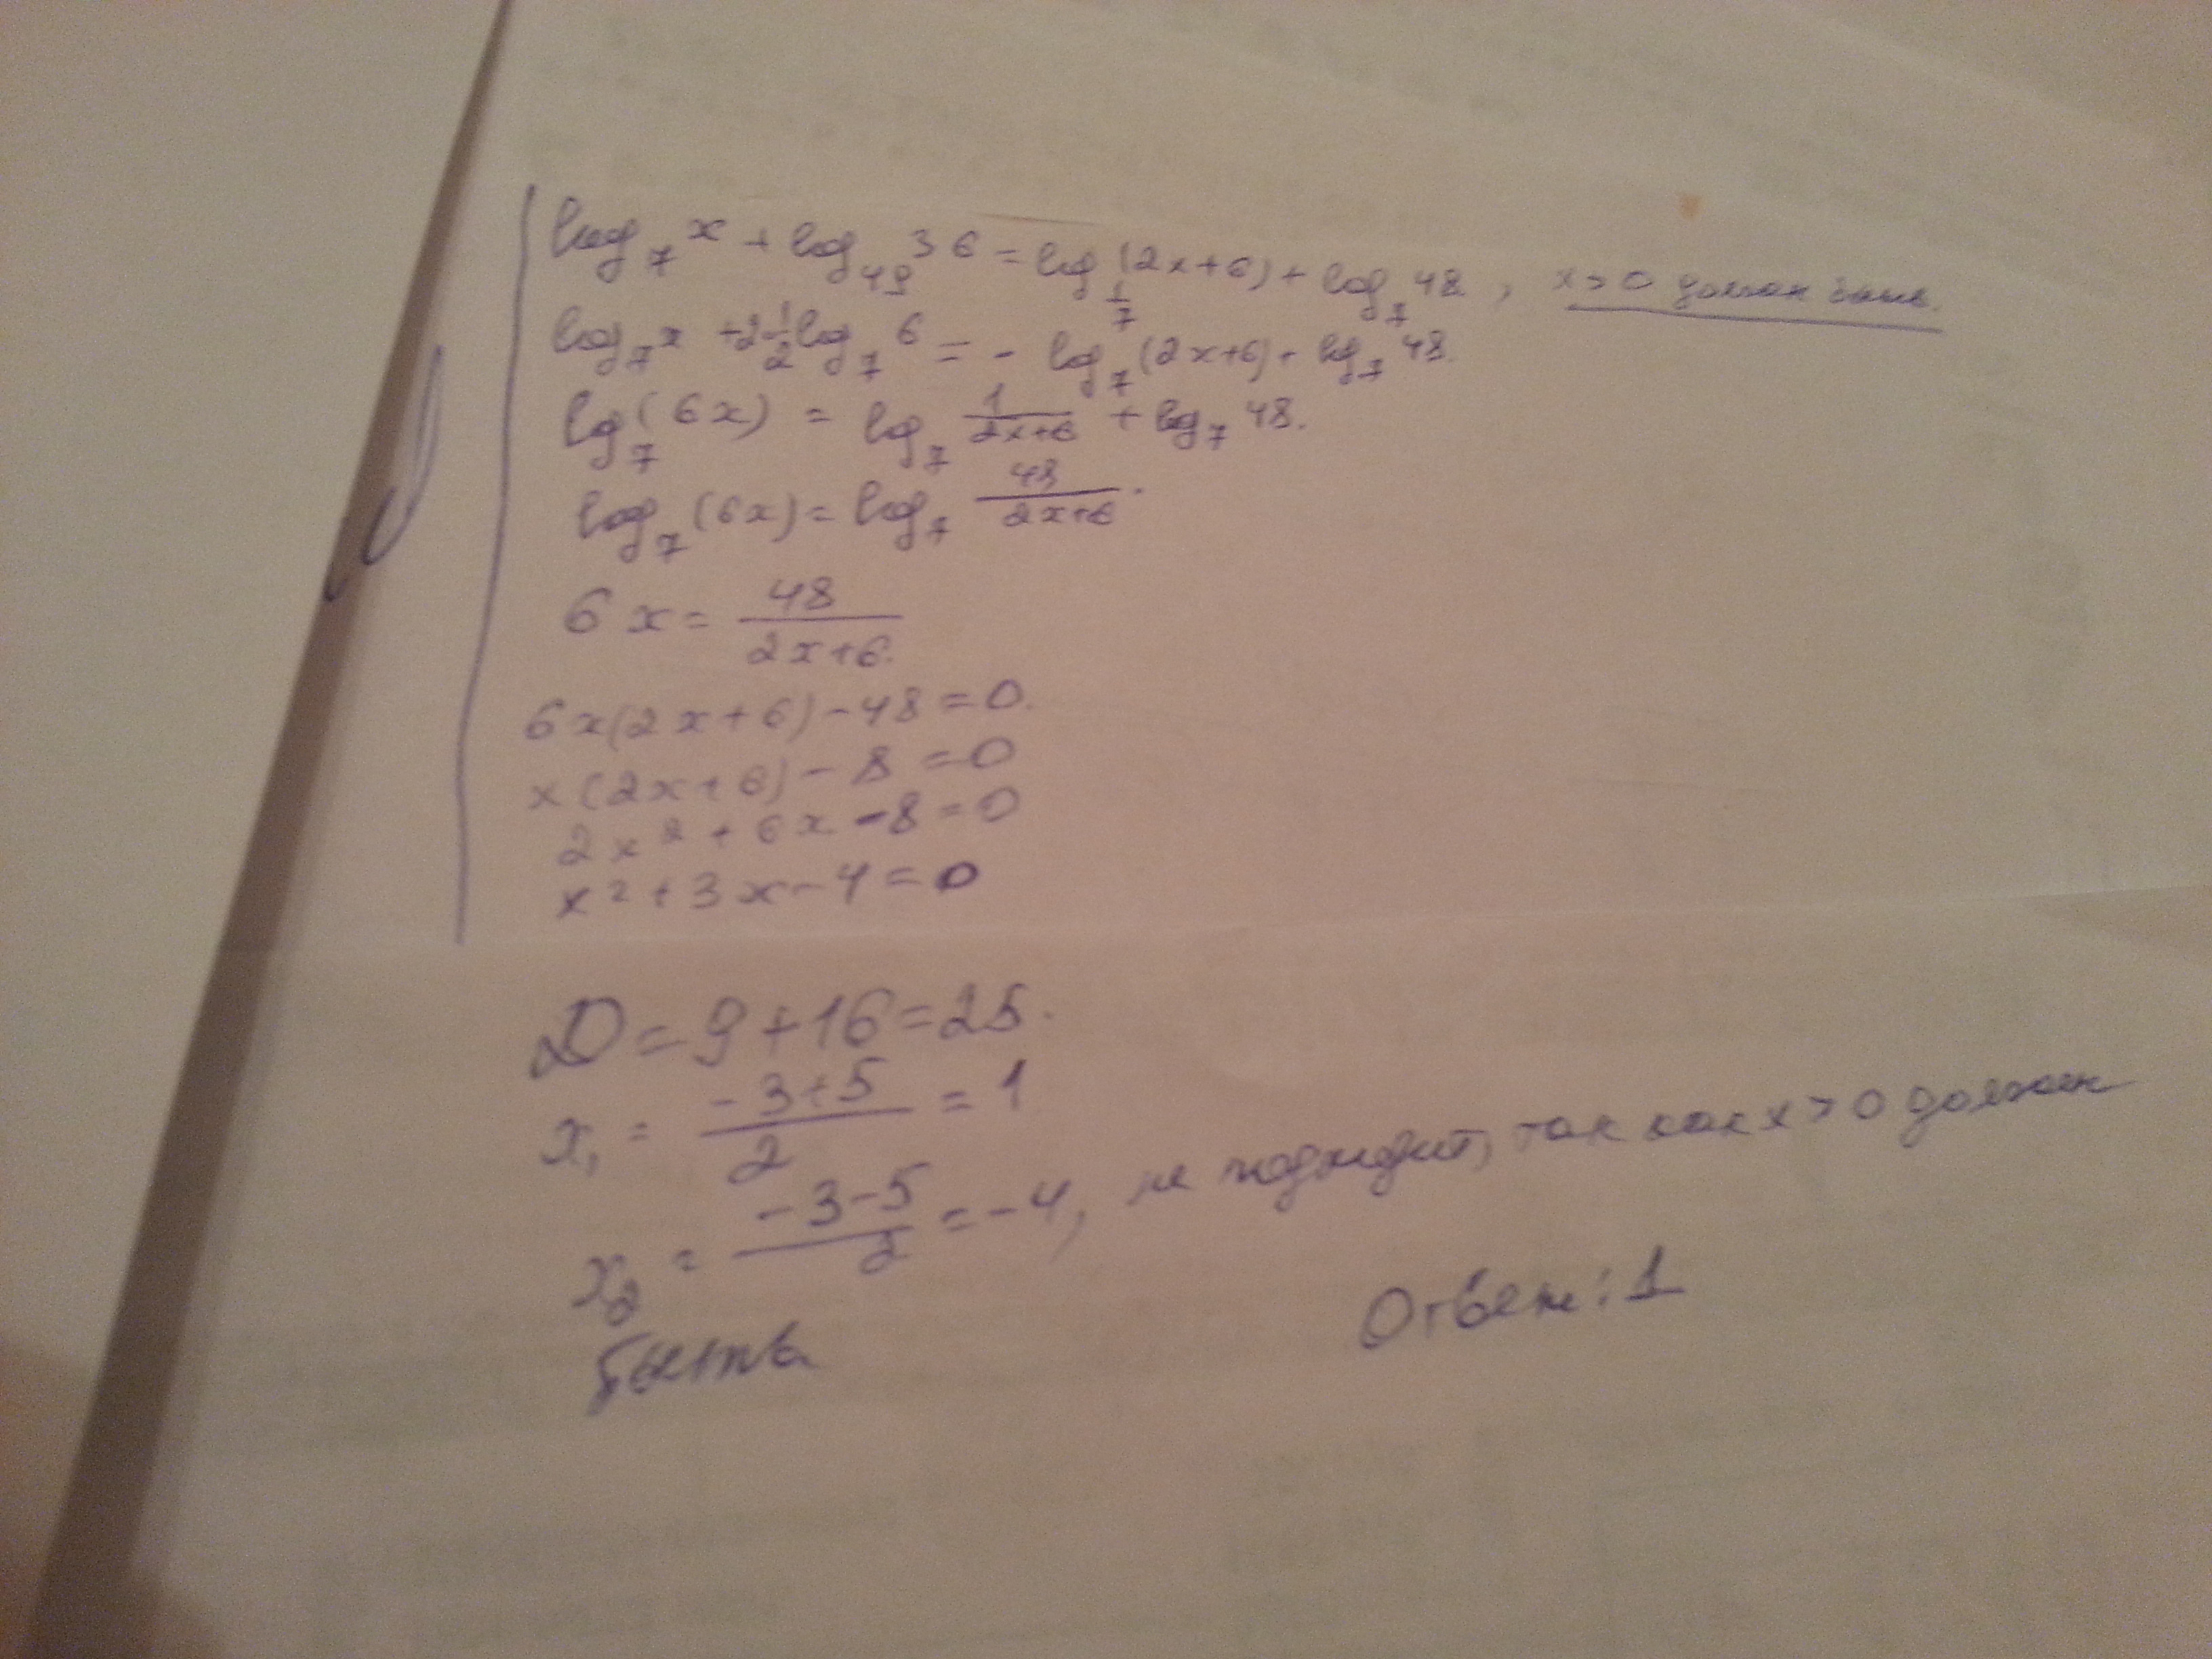 log₇ x + log₄₉ 36 = log_{1/7} (2x+6) + log₇ 48 , x > 0 должен быть.
log₇ x + 2·\frac{1}{2} log₇ 6 = - log₇ (2x+6) + log₇ 48.
log₇ (6x) = log₇ \frac{1}{2x+6} + log₇ 48.
log₇ (6x) = log₇ \frac{48}{2x+6}.
6x = \frac{48}{2x+6}.
6x(2x+6) - 48 = 0.
x(2x+6) - 8 = 0
2x² + 6x - 8 = 0
x² + 3x - 4 = 0
D = 9 + 16 = 25.
x₁ = \frac{-3+5}{2} = 1
x₂ = \frac{-3-5}{2} = -4, не подходит, так как x > 0 должен
быть.
Ответ: 1